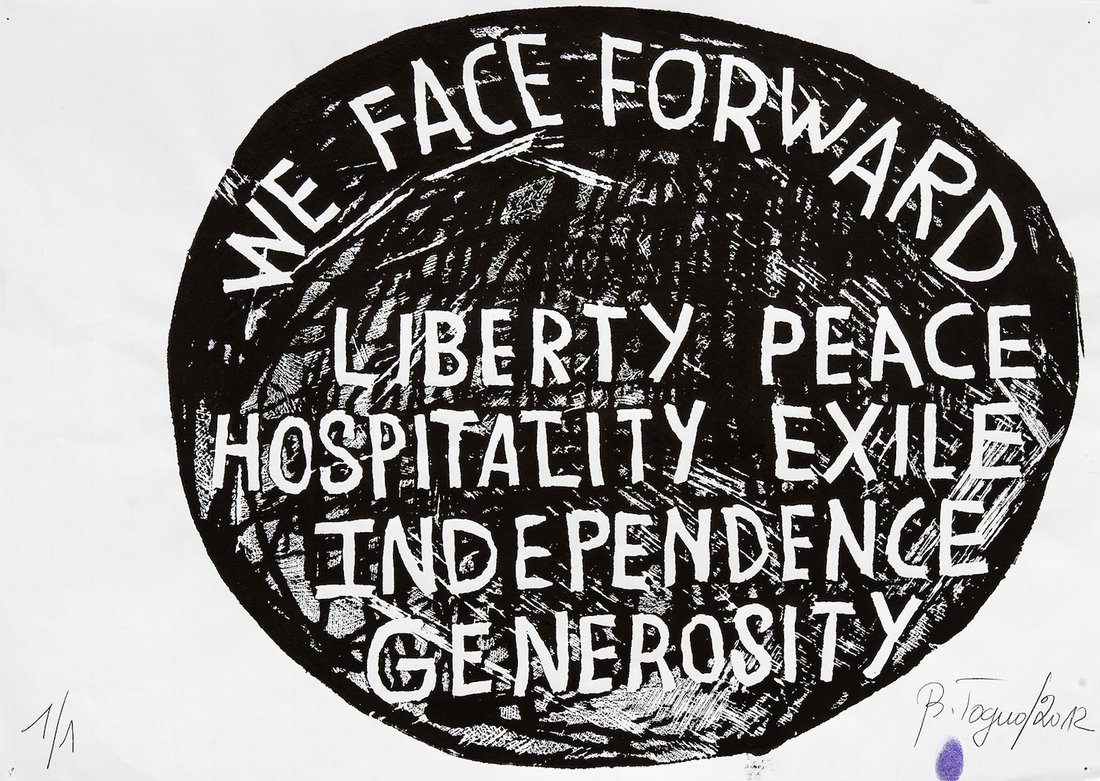 WE FACE FORWARD
LIBERTY PEACE
HOSPITALITY EXILE
INDEPENDENCE
GENEROSITY
1/1
B. Toguo/2012